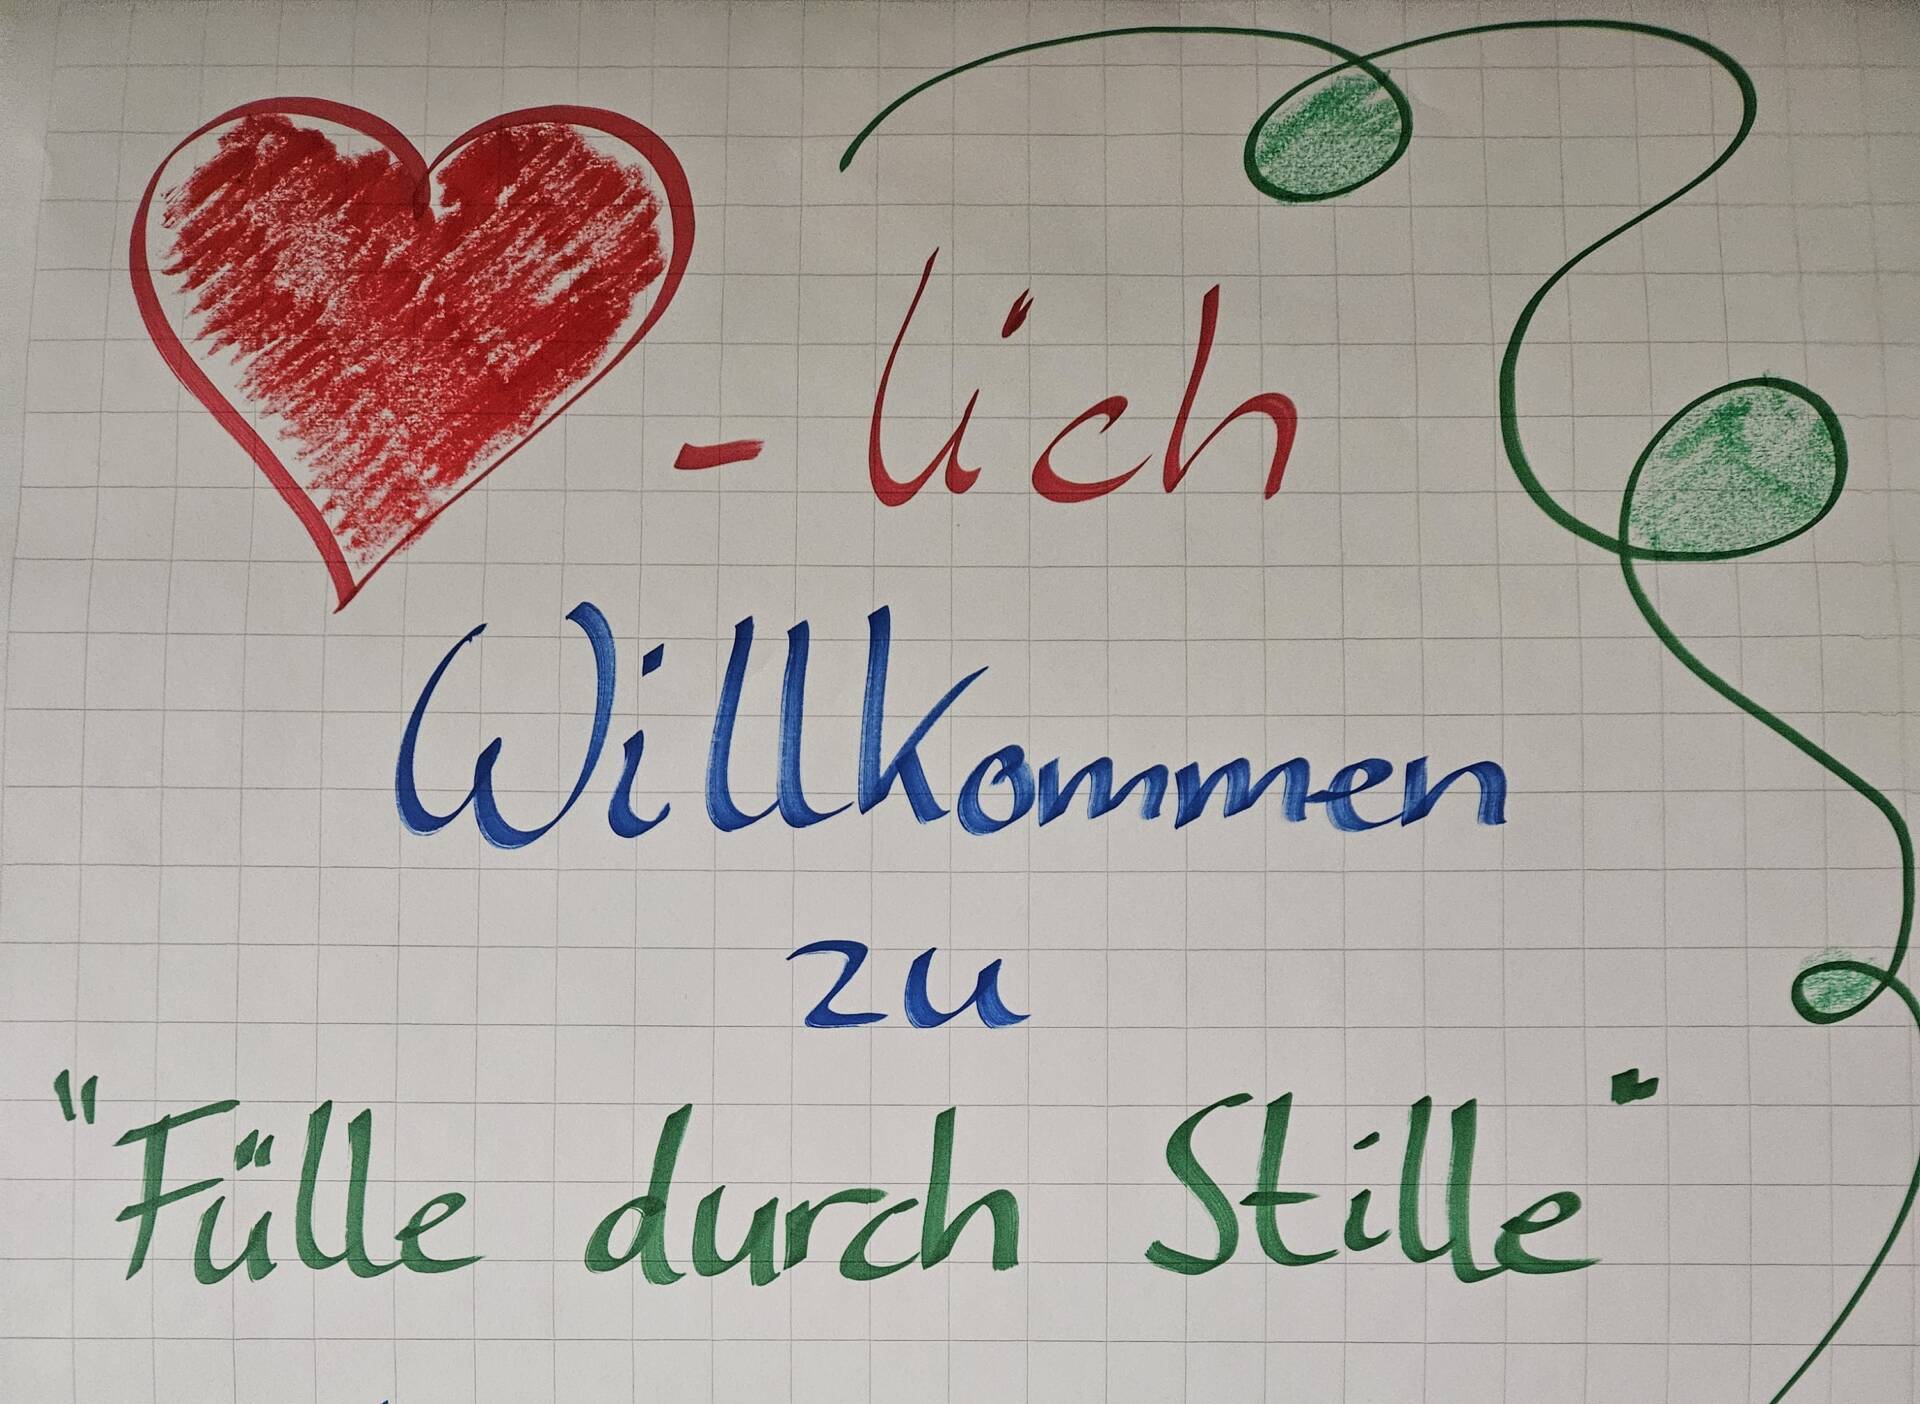 -lich
Willkommen
zu
"Fülle durch Stille"